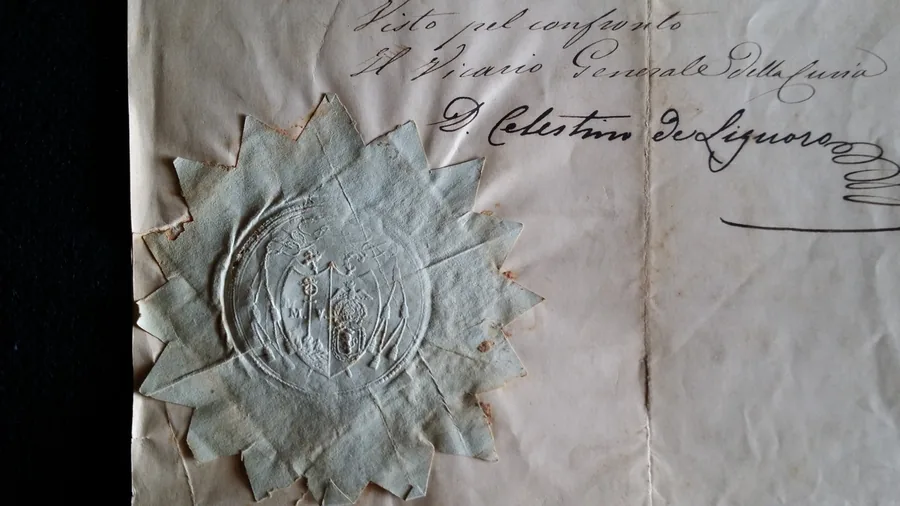 Visto pel confronto
Il Vicario Generale della Curia
D. Celestino de Liguoro
M. V.